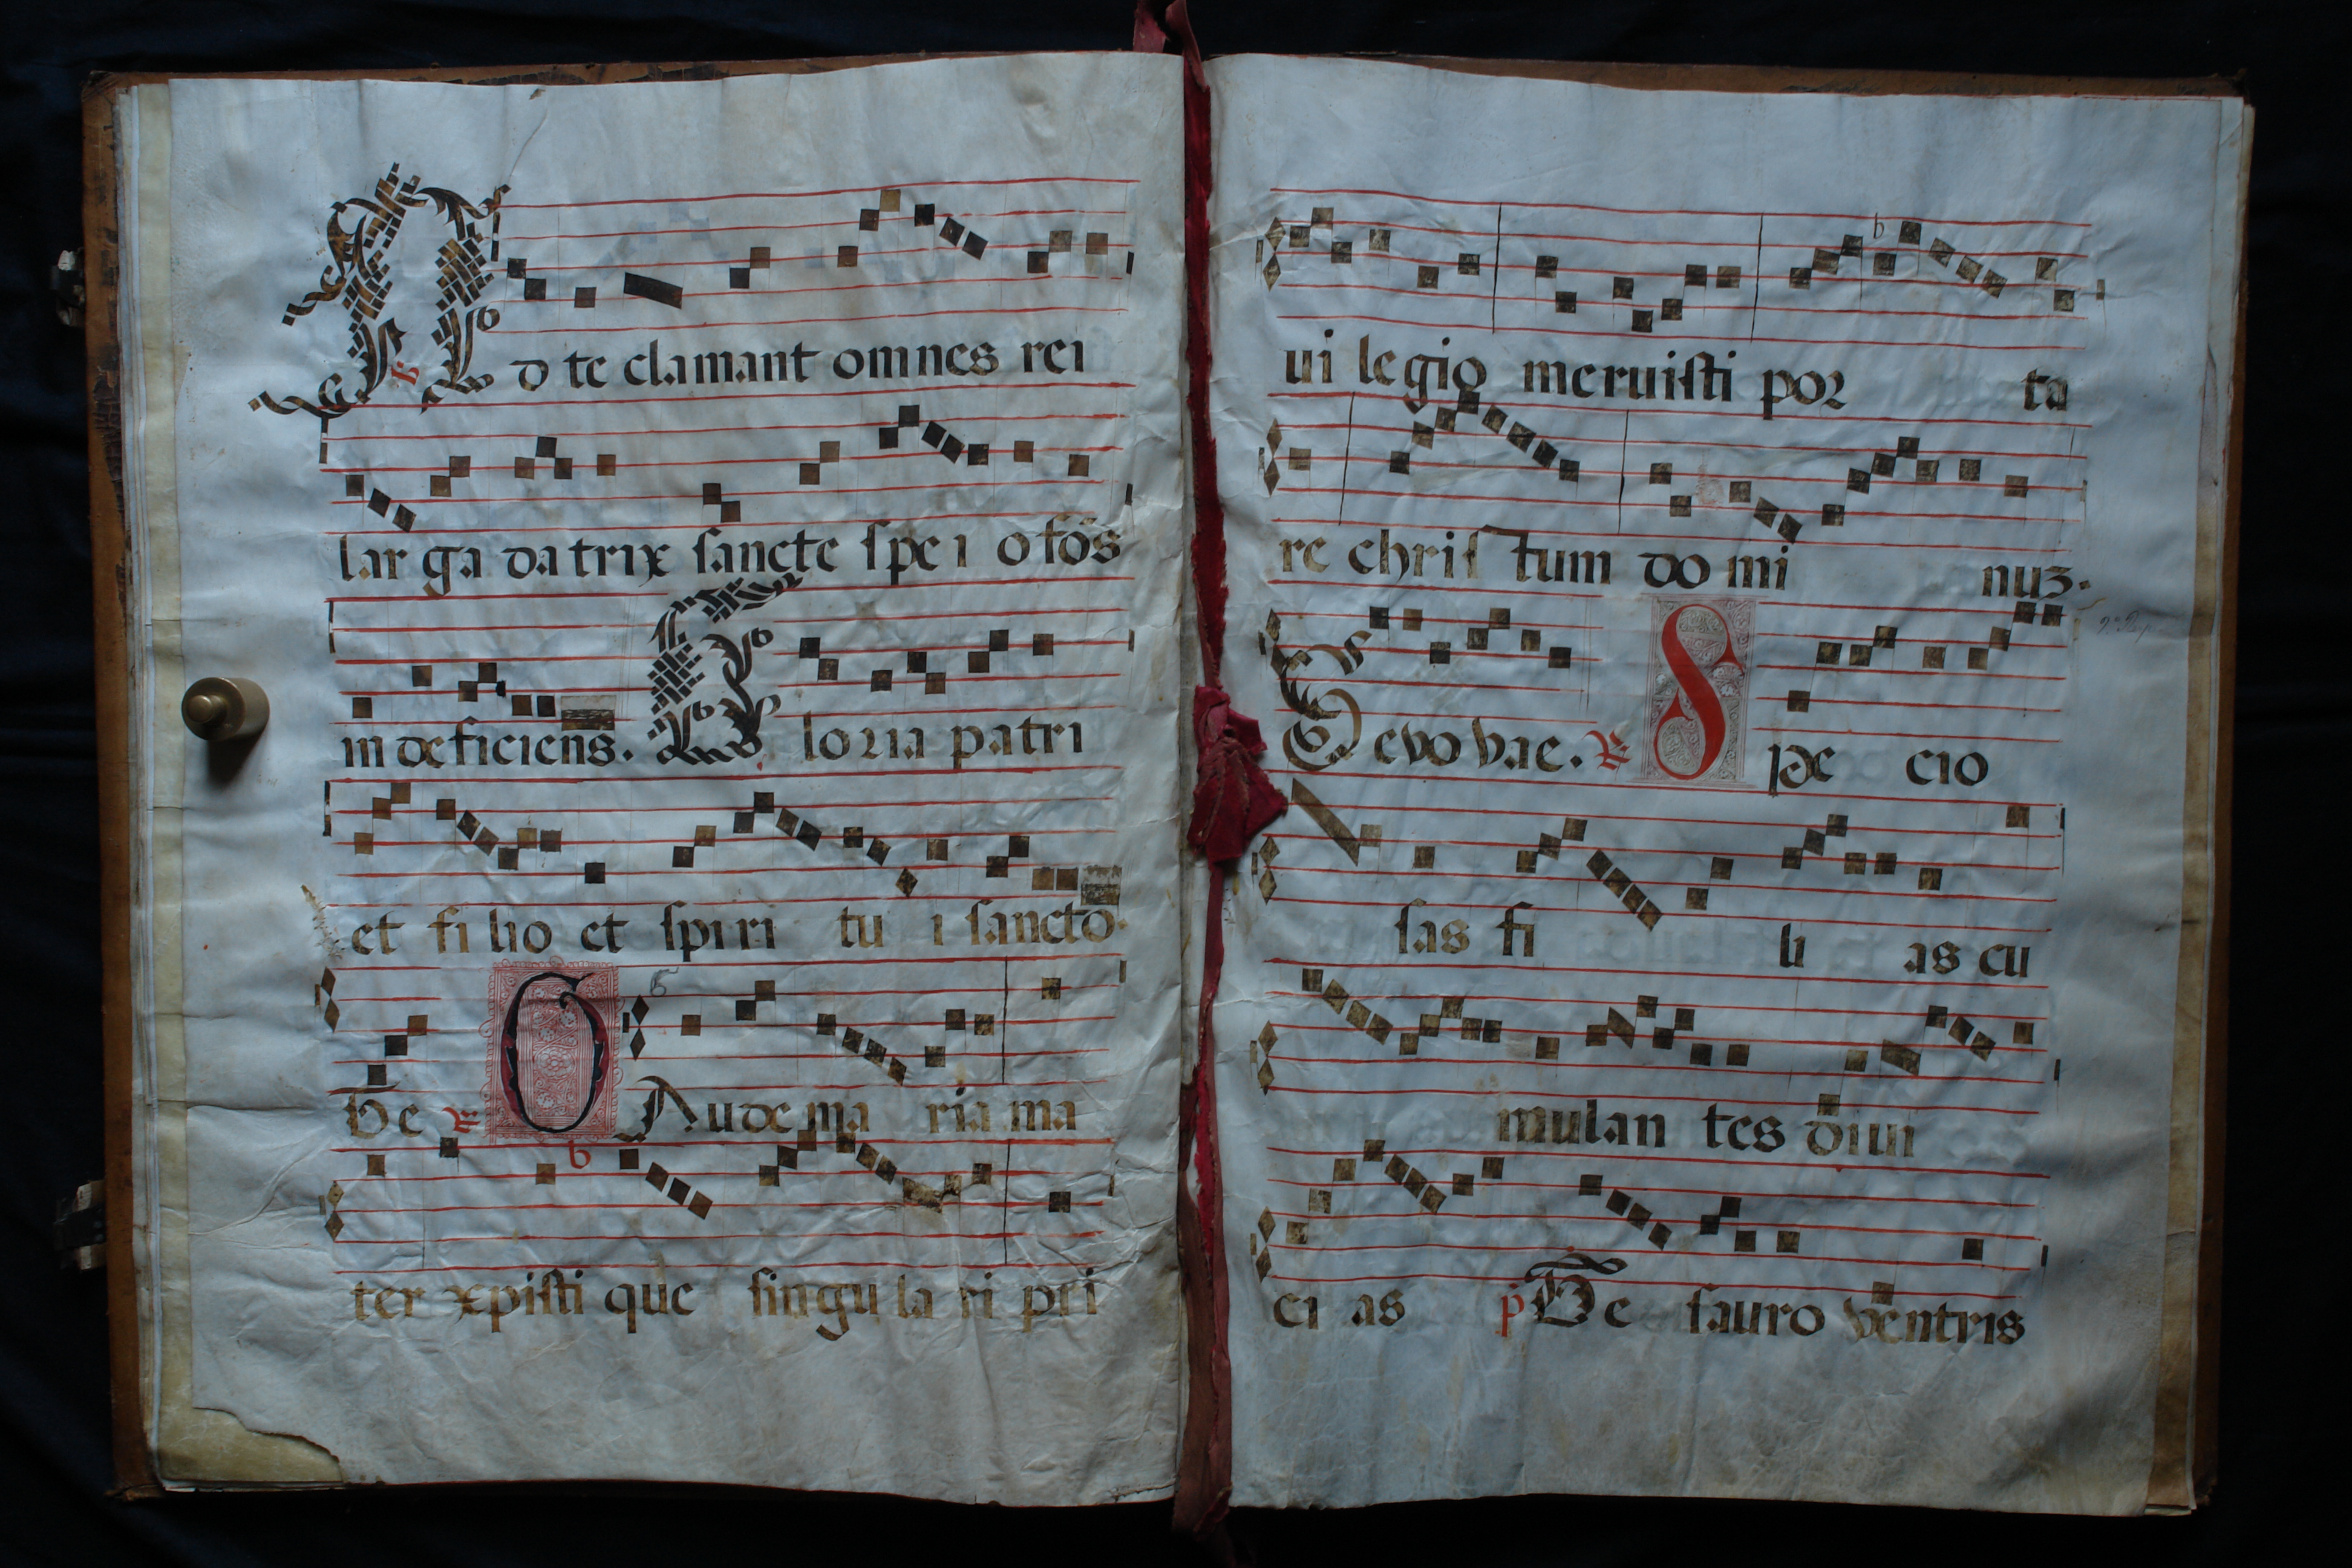 Ad te clamant omnes rei
lar ga datrix sancte spe i o fōs
in deficiens. Gloria patri
et fi lio et spiri tu i sancto.
De Gaude ma ria ma
ter xpisti que singu la ri pri
ui legio meruisti por ta
re chris tum do mi nuz.
Sevo vae. Spe cio
sas fi li as cu
mulan tes diui
ci as p De sauro ventris